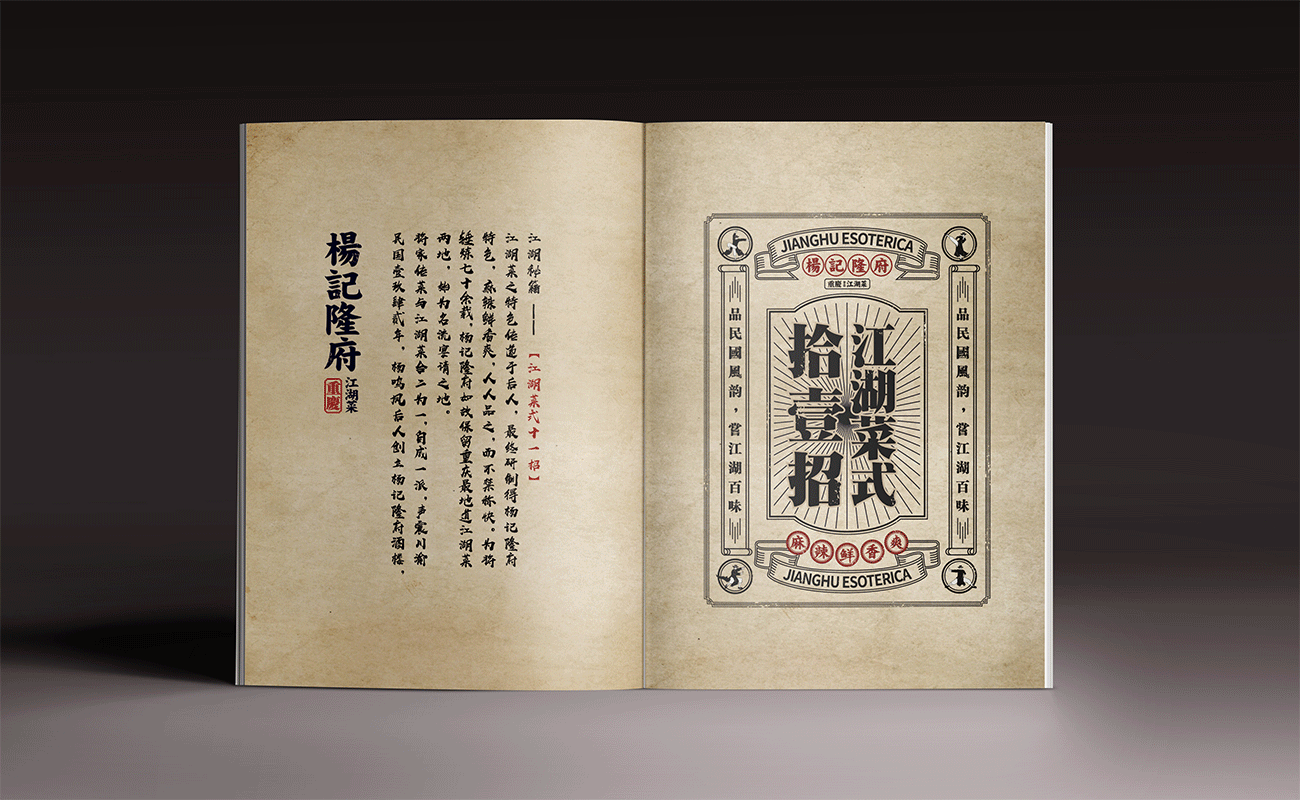 楊記隆府
江湖菜
重慶
民国壹玖肆贰年，杨鸣凤后人创立杨记隆府酒楼，
将家传菜与江湖菜合二为一，自成一派，声震川渝
两地，为名流宴请之地。
锤练七十余载，杨记隆府如故保留重庆最地道江湖菜
特色，麻辣鲜香爽，人人品之，而不禁称快。为将
江湖菜之特色传递于后人，最终研制得杨记隆府
江湖秘籍 ——【江湖菜式十一招】
JIANGHU ESOTERICA
楊記隆府
重慶江湖菜
品民國風韵，嘗江湖百味
江湖菜式
拾壹招
品民國風韵，嘗江湖百味
麻辣鲜香爽
JIANGHU ESOTERICA